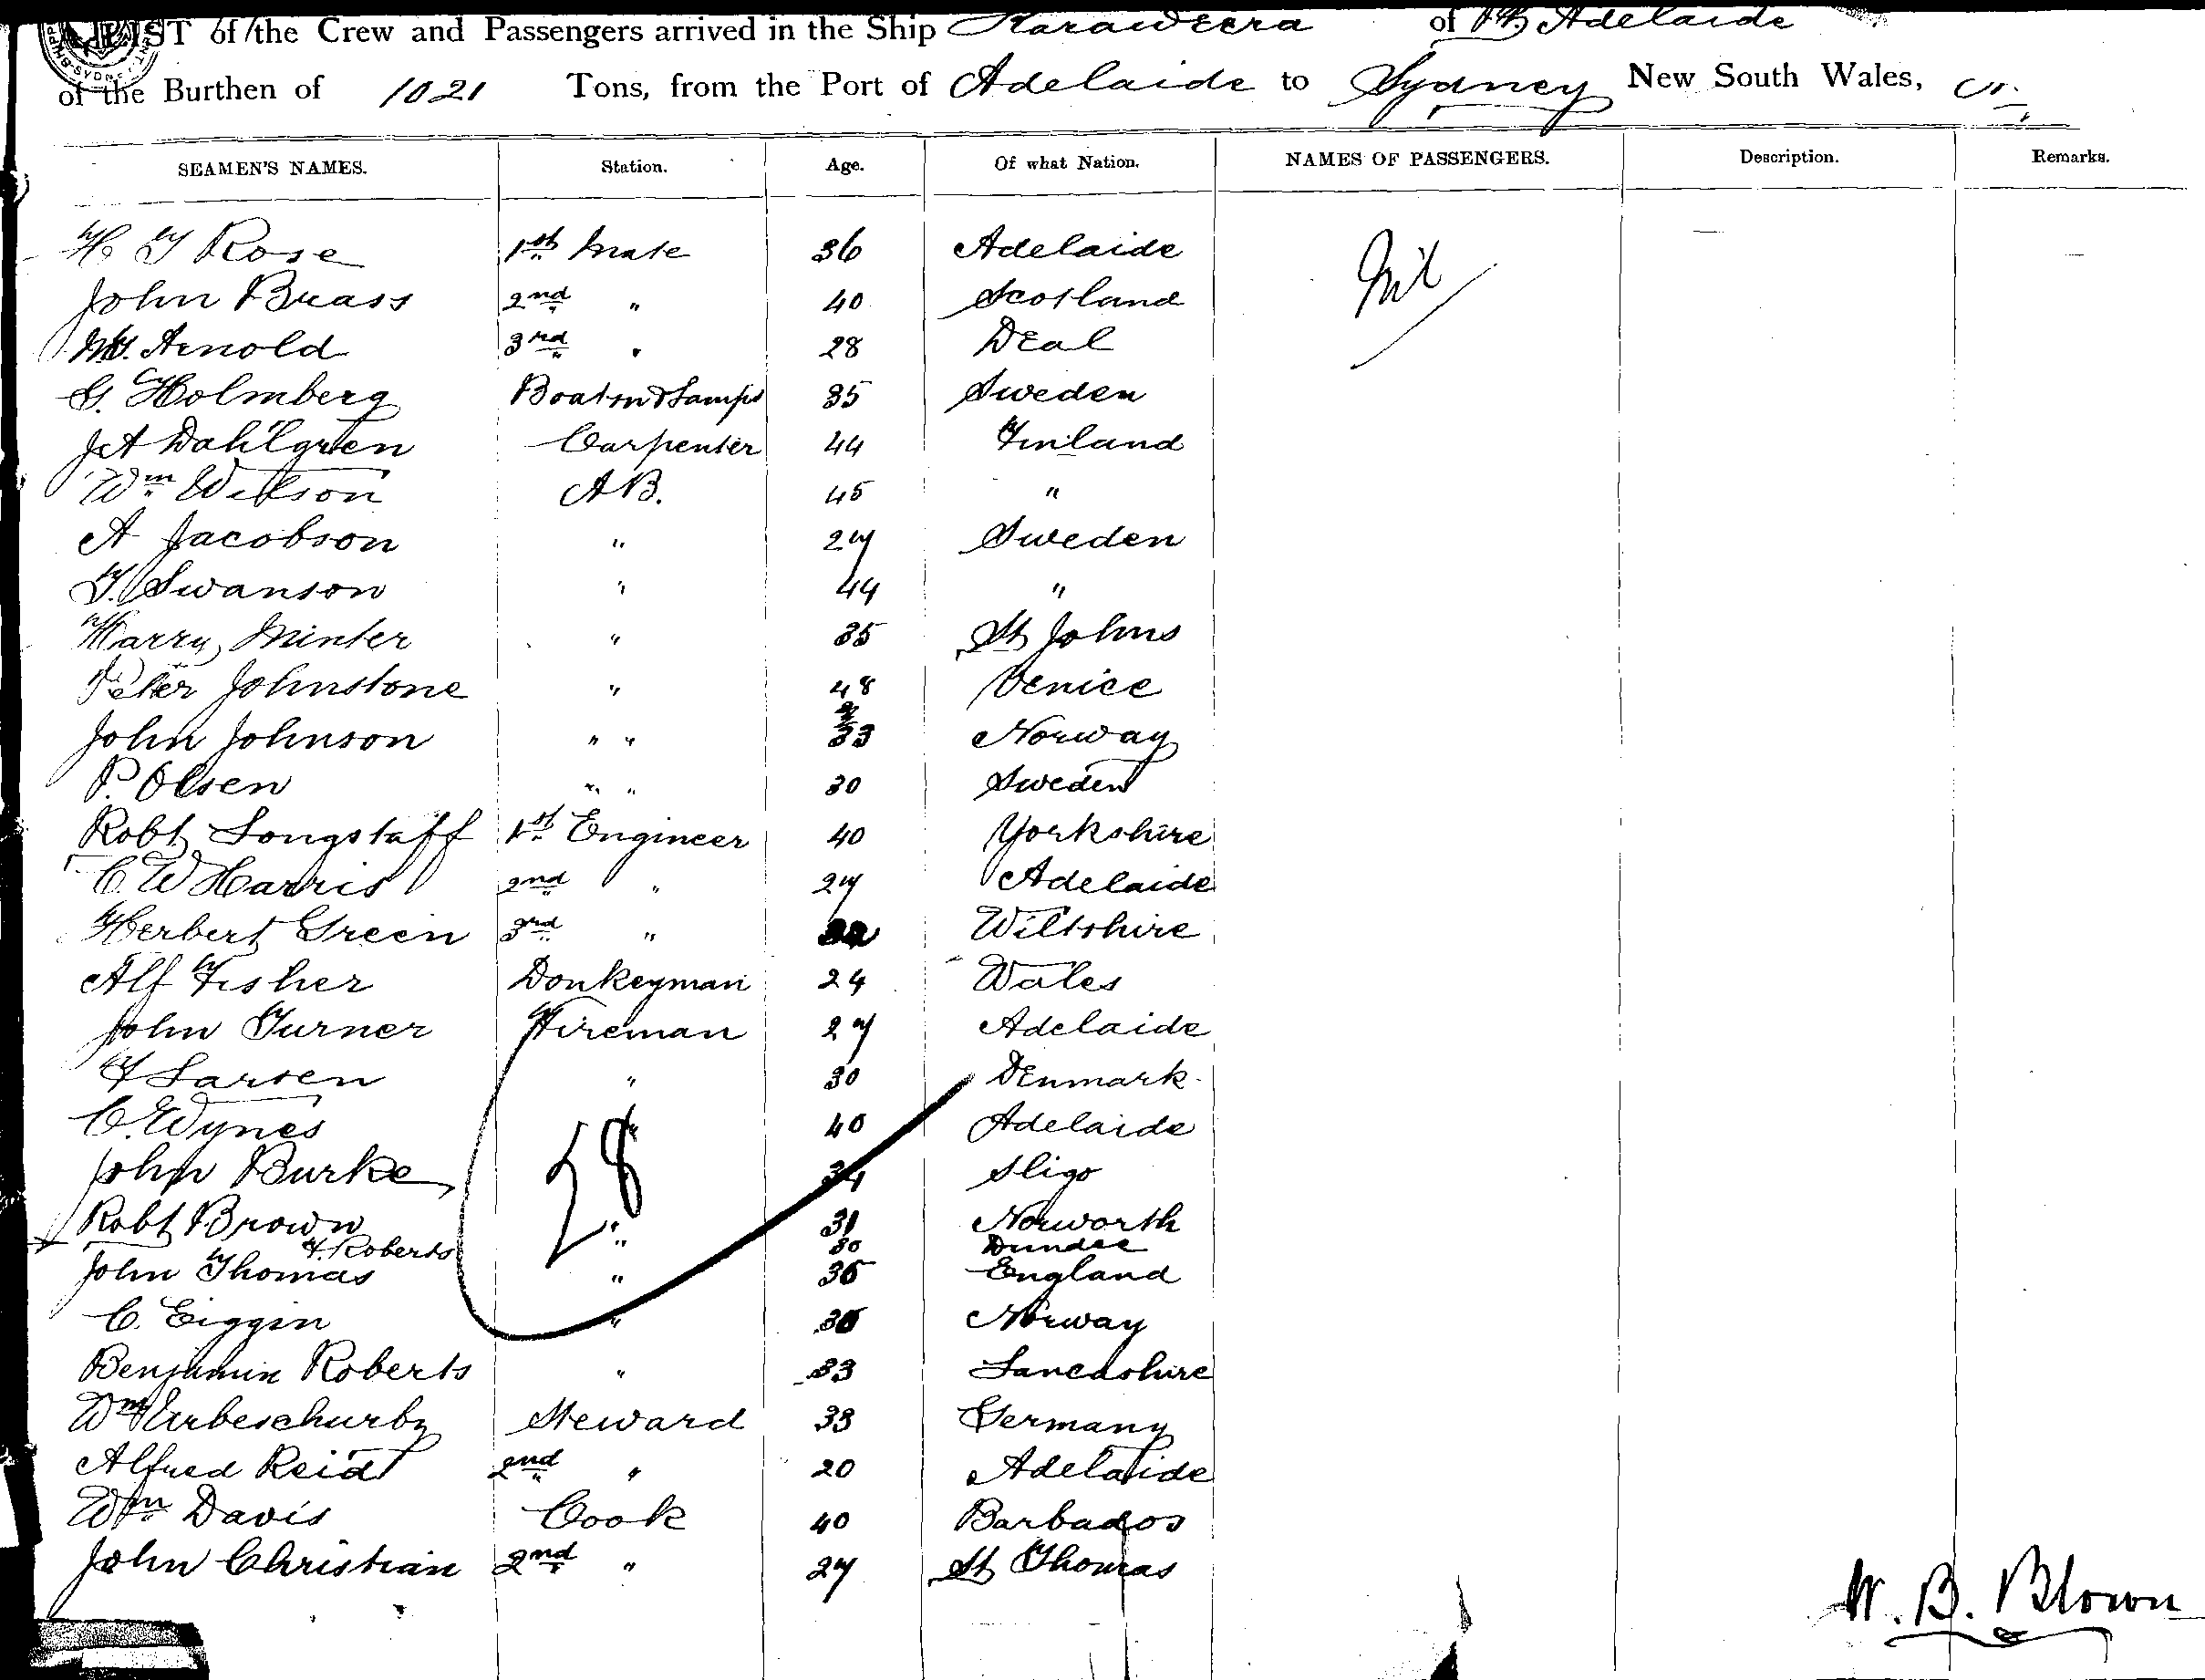 LIST of the Crew and Passengers arrived in the Ship Karaweera of Pt Adelaide
of the Burthen of 1021 Tons, from the Port of Adelaide to Sydney New South Wales,
SEAMEN'S NAMES. Station. Age. Of what Nation. NAMES OF PASSENGERS. Description. Remarks.
H J Rose 1st Mate 36 Adelaide Nil
John Brass 2nd " 40 Scotland
Arnold 3rd " 28 Deal
G. Holmberg Boatsn & Lamps 35 Sweden
J A Dahlgren Carpenter 44 Finland
Wm Wilson A B. 45 "
A Jacobson " 27 Sweden
T. Swanson " 44 "
Harry Minter " 35 St Johns
Peter Johnstone " 48 Venice
John Johnson " " 33 Norway
P. Olsen " " 30 Sweden
Robt Longstaff 1st Engineer 40 Yorkshire
C W Harris 2nd " 27 Adelaide
Herbert Green 3rd " Wiltshire
Alf Fisher Donkeyman 24 Wales
John Turner Fireman 27 Adelaide
F Larsen " 30 Denmark
C. Wynes " 40 Adelaide
John Burke 34 Sligo
28
Robt Brown " 31 Norworth
F. Roberts " 30 Dundee
John Thomas " 36 England
C. Eiggin " Norway
Benjamin Roberts " 33 Lancashire
Wm Steward 33 Germany
Alfred Reid 2nd " 20 Adelaide
Wm Davis Cook 40 Barbados
John Christian 2nd " 27 St Thomas
W. B. Blown